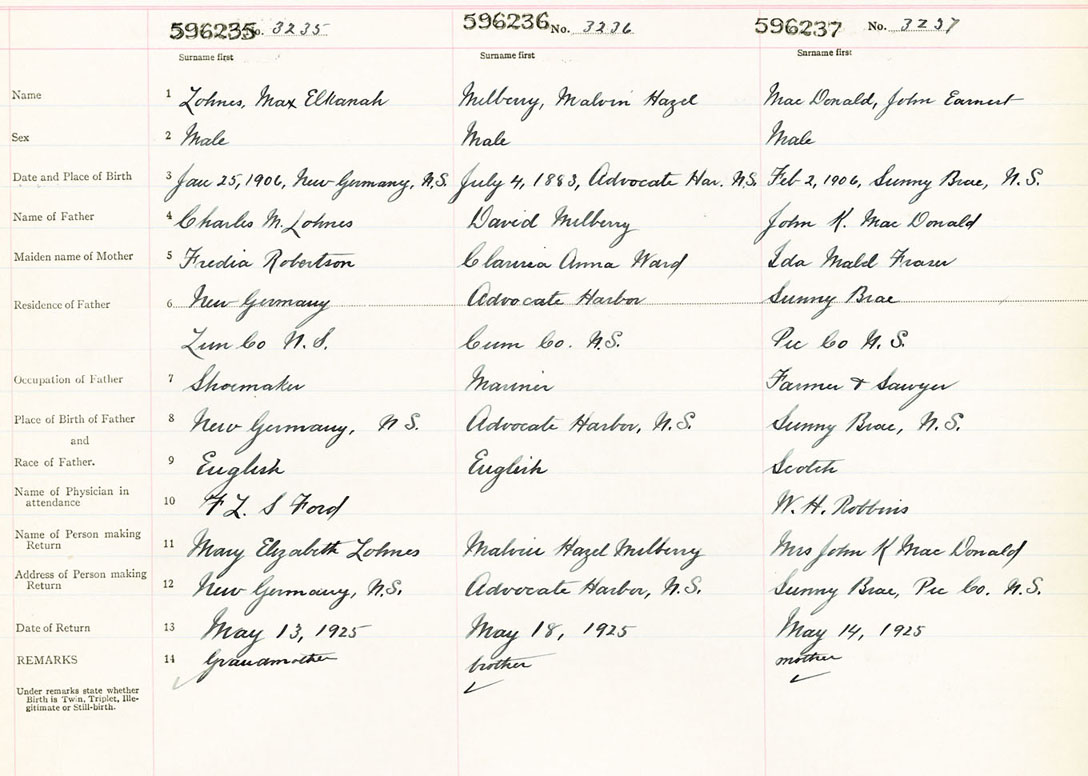 596235 No. 3235 596236 No. 3236 596237 No. 3237
Surname first Surname first Surname first
Name 1 Lohnes, Max Elkanah Milberry, Malvin Hazel Mac Donald, John Earnest
Sex 2 Male Male Male
Date and Place of Birth 3 Jan 25, 1906, New Germany, N.S. July 4, 1883, Advocate Har. N.S. Feb 2, 1906, Sunny Brae, N.S.
Name of Father 4 Charles M. Lohnes David Milberry John K. Mac Donald
Maiden name of Mother 5 Fredia Robertson Clarissa Anna Ward Ida Mald Fraser
Residence of Father 6 New Germany Advocate Harbor Sunny Brae
Lun Co N.S. Cum Co. N.S. Pic Co N.S.
Occupation of Father 7 Shoemaker Mariner Farmer & Sawyer
Place of Birth of Father 8 New Germany, N S. Advocate Harbor, N.S. Sunny Brae, N.S.
and
Race of Father. 9 English English Scotch
Name of Physician in
attendance 10 F L. S Ford W. H. Robbins
Name of Person making
Return 11 Mary Elizabeth Lohnes Malvin Hazel Milberry Mrs John K Mac Donald
Address of Person making
Return 12 New Germany, N.S. Advocate Harbor, N.S. Sunny Brae, Pic Co. N.S.
Date of Return 13 May 13, 1925 May 18, 1925 May 14, 1925
REMARKS 14 Grandmother brother mother
Under remarks state whether
Birth is Twin, Triplet, Ille-
gitimate or Still-birth.